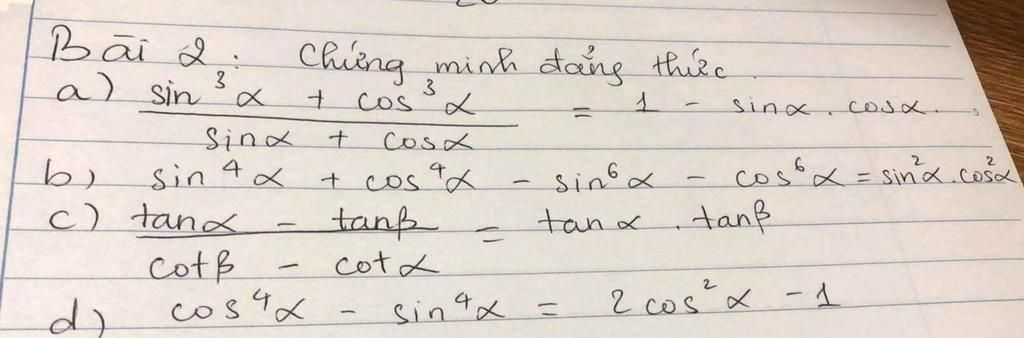 Bài 2: Chứng minh đẳng thức.
a) sin³α + cos³α / sinα + cosα = 1 - sinα . cosα.
b) sin⁴α + cos⁴α - sin⁶α - cos⁶α = sin²α.cos²α
c) tanα - tanβ / cotβ - cotα = tanα . tanβ
d) cos⁴α - sin⁴α = 2cos²α - 1